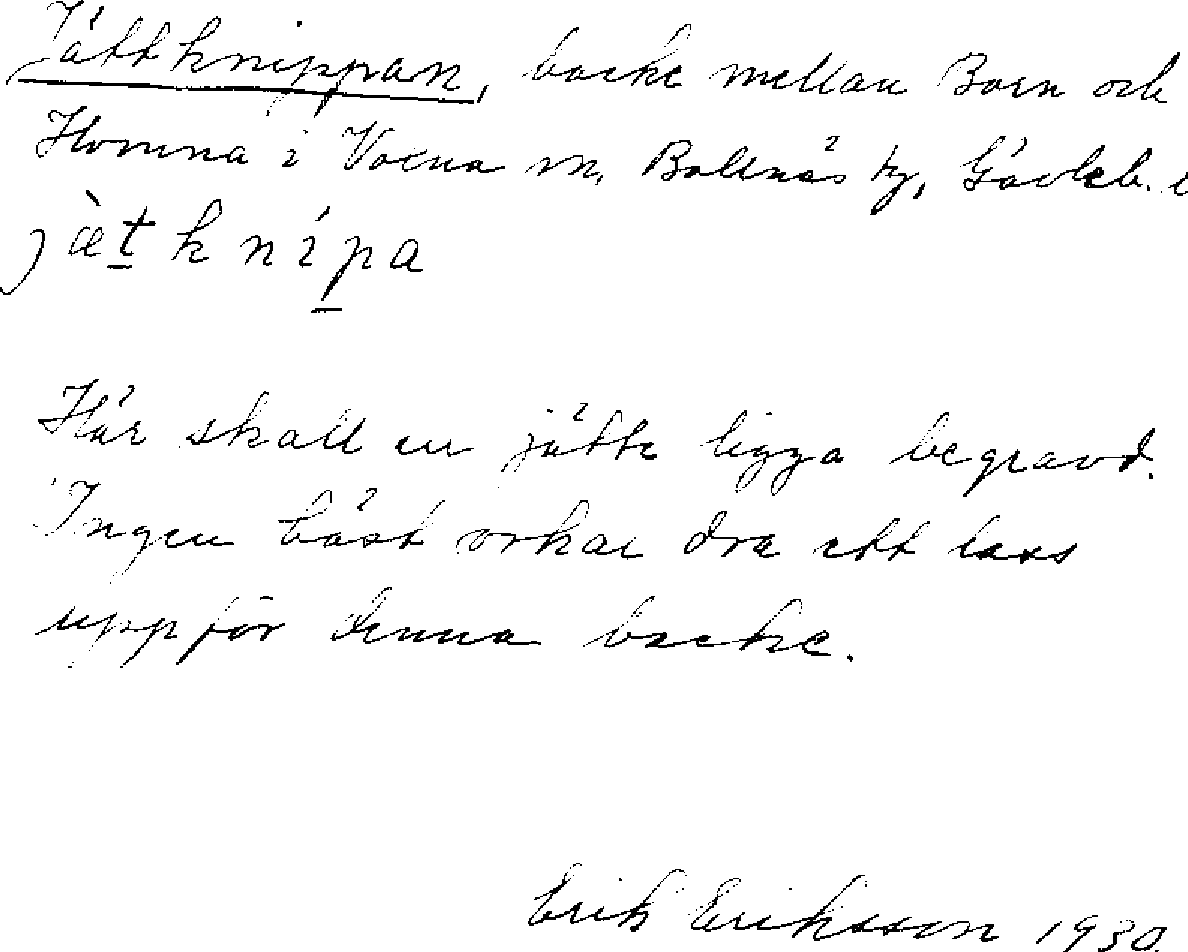 Jättknippan, backe mellan Born och
Homna i Voxna sn, Bollnäs tg, Gävleb. l
jæ̀t k n í p a
Här skall en jätte ligga begravd.
Ingen häst orkar dra ett lass
uppför denna backe.
Erik Eriksson 1930.